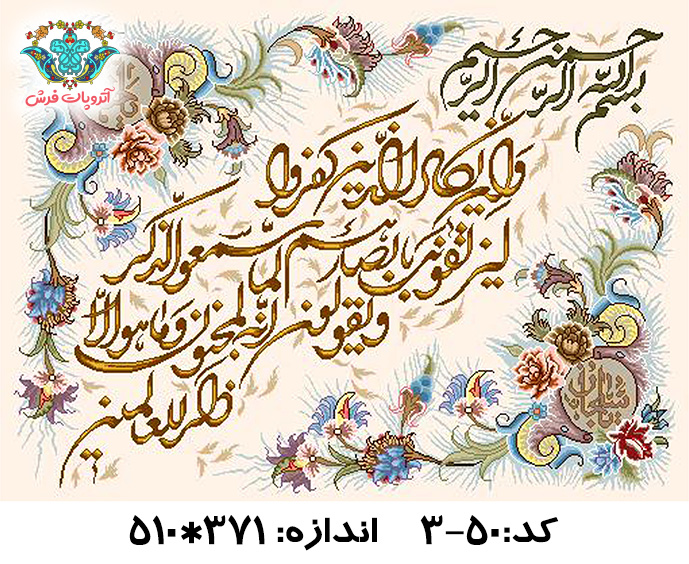 آتروپات فرش
بسم الله الرحمن الرحیم
وان یکاد الذین کفروا
لیزلقونک بابصارهم لما سمعوا الذکر
ویقولون انه لمجنون وما هو الا
ذکر للعالمین
کد:۵۰-۳ اندازه: ۳۷۱*۵۱۰